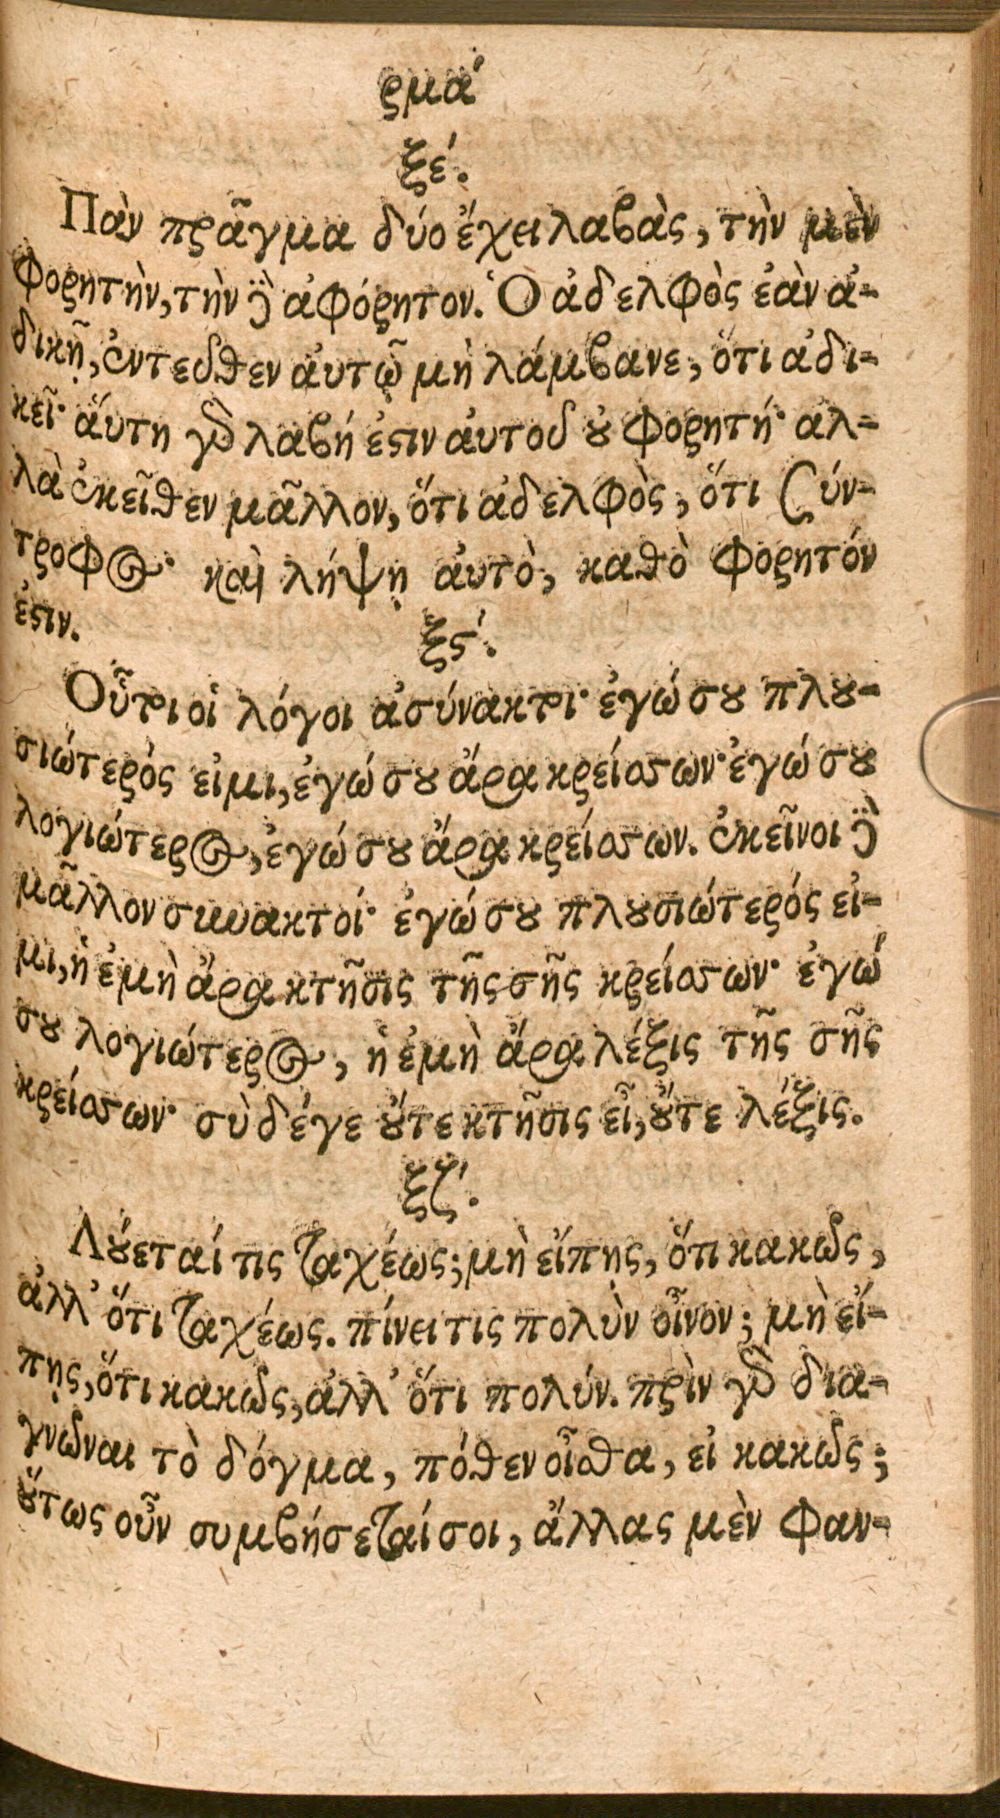 ρμά
ξέ.
Πᾶν πρᾶγμα δύο ἔχει λαβὰς, τὴν μὲν
φορητὴν, τὴν δὲ ἀφόρητον. Ὁ ἀδελφὸς ἐὰν ἀ-
δικῇ, ἐντεῦθεν ἀυτῷ μὴ λάμβανε, ὅτι ἀδι-
κεῖ· ἅυτη γὰρ λαβή ἐστιν ἀυτοῦ οὐ φορητή· αλ-
λὰ ἐκεῖθεν μᾶλλον, ὅτι ἀδελφὸς, ὅτι σύν-
τροφος· καὶ λήψῃ ἀυτὸ, καθὸ φορητόν
ἐστιν.
ξϛ΄.
Οὗτοι οἱ λόγοι ἀσύνακτοι· ἐγώ σου πλου-
σιώτερός εἰμι, ἐγώ σου ἄρα κρείσσων· ἐγώ σου
λογιώτερος, ἐγώ σου ἄρα κρείσσων. ἐκεῖνοι δὲ
μᾶλλον συνακτοί· ἐγώ σου πλουσιώτερός εἰ-
μι, ἡ ἐμὴ ἄρα κτῆσις τῆς σῆς κρείσσων· ἐγώ
σου λογιώτερος, ἡ ἐμὴ ἄρα λέξις τῆς σῆς
κρείσσων· σὺ δέγε οὔτε κτῆσις εἶ, οὔτε λέξις.
ξζ΄.
Λούεταί τις ταχέως; μὴ εἴπῃς, ὅτι κακῶς,
ἀλλ' ὅτι ταχέως. πίνει τις πολὺν οἶνον; μὴ εἴ-
πῃς, ὅτι κακῶς, ἀλλ' ὅτι πολύν. πρὶν γὰρ δια-
γνῶναι τὸ δόγμα, πόθεν οἶσθα, εἰ κακῶς;
οὕτως οὖν συμβήσεταί σοι, ἄλλας μὲν φαν-